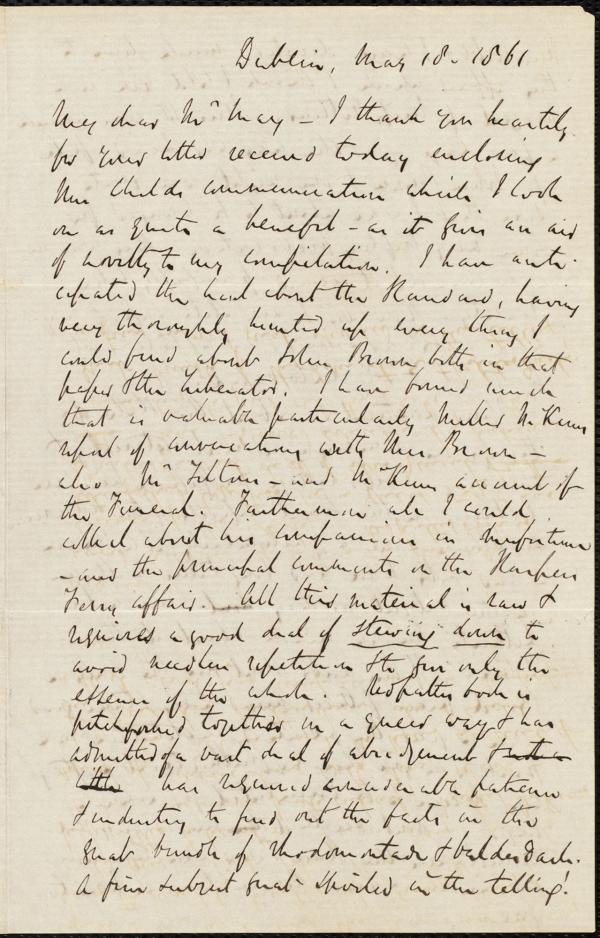 Dublin, May 18 - 1861
My dear Mr May - I thank you heartily
for your letter received today enclosing
Mrs Childs communication which I look
on as quite a benefit - as it gives an aid
of novelty to my compilation. I have anti-
cipated the hint about the Standard, having
very thoroughly hunted up every thing I
could find about John Brown both in that
paper & the Liberator. I have found much
that is valuable particularly Miller McKim's
report of conversations with Mrs Brown -
also Mr Tilton - and McKim's account of
the Funeral. Furthermore all I could
collect about his companions in misfortune
- and the principal comments on the Harpers
Ferry affair. All this material is raw &
requires a good deal of stewing down to
avoid needless repetition & to give only the
essence of the whole. Redpath's book is
pitchforked together in a queer way & has
admitted of a vast deal of abridgement & not a
little has required considerable patience
& industry to find out the facts in the
great bundle of rhodomontade & balderdash.
A fine subject great spoiled in the telling!